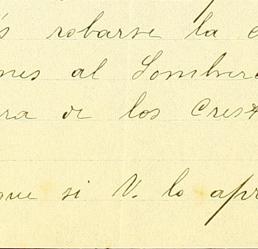 s robarse la c
nes al Sombrer
ra de los Crest
que si V. lo apr